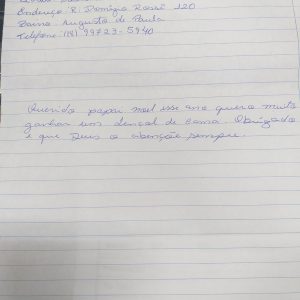 Endereço R: Domízio Rossi 120
Bairro Augusto de Paula
Telefone (14) 99723-5940
Querido papai noel esse ano quero muito
ganhar um lençol de cama. Obrigado
e que Deus o abençoe sempre.